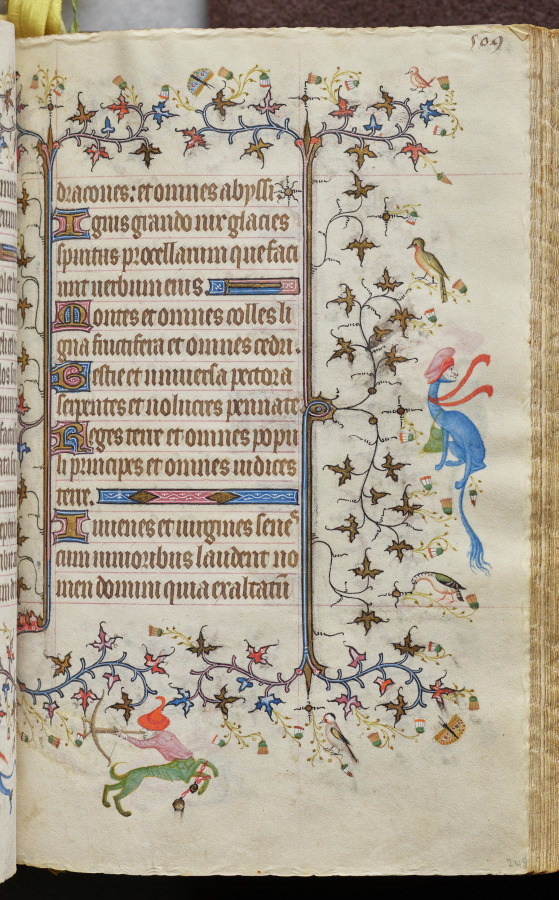 509
dracones: et omnes abyssi
Ignis grando nix glacies
spiritus procellarum que faci
unt uerbum eius
Montes et omnes colles li
gna fructifera et omnes cedri.
Bestie et uniuersa pectora
serpentes et uolucres pennate
Reges terre et omnes popu
li principes et omnes iudices
terre.
Iuuenes et uirgines senes
cum iunioribus laudent no
men domini quia exaltatū
248